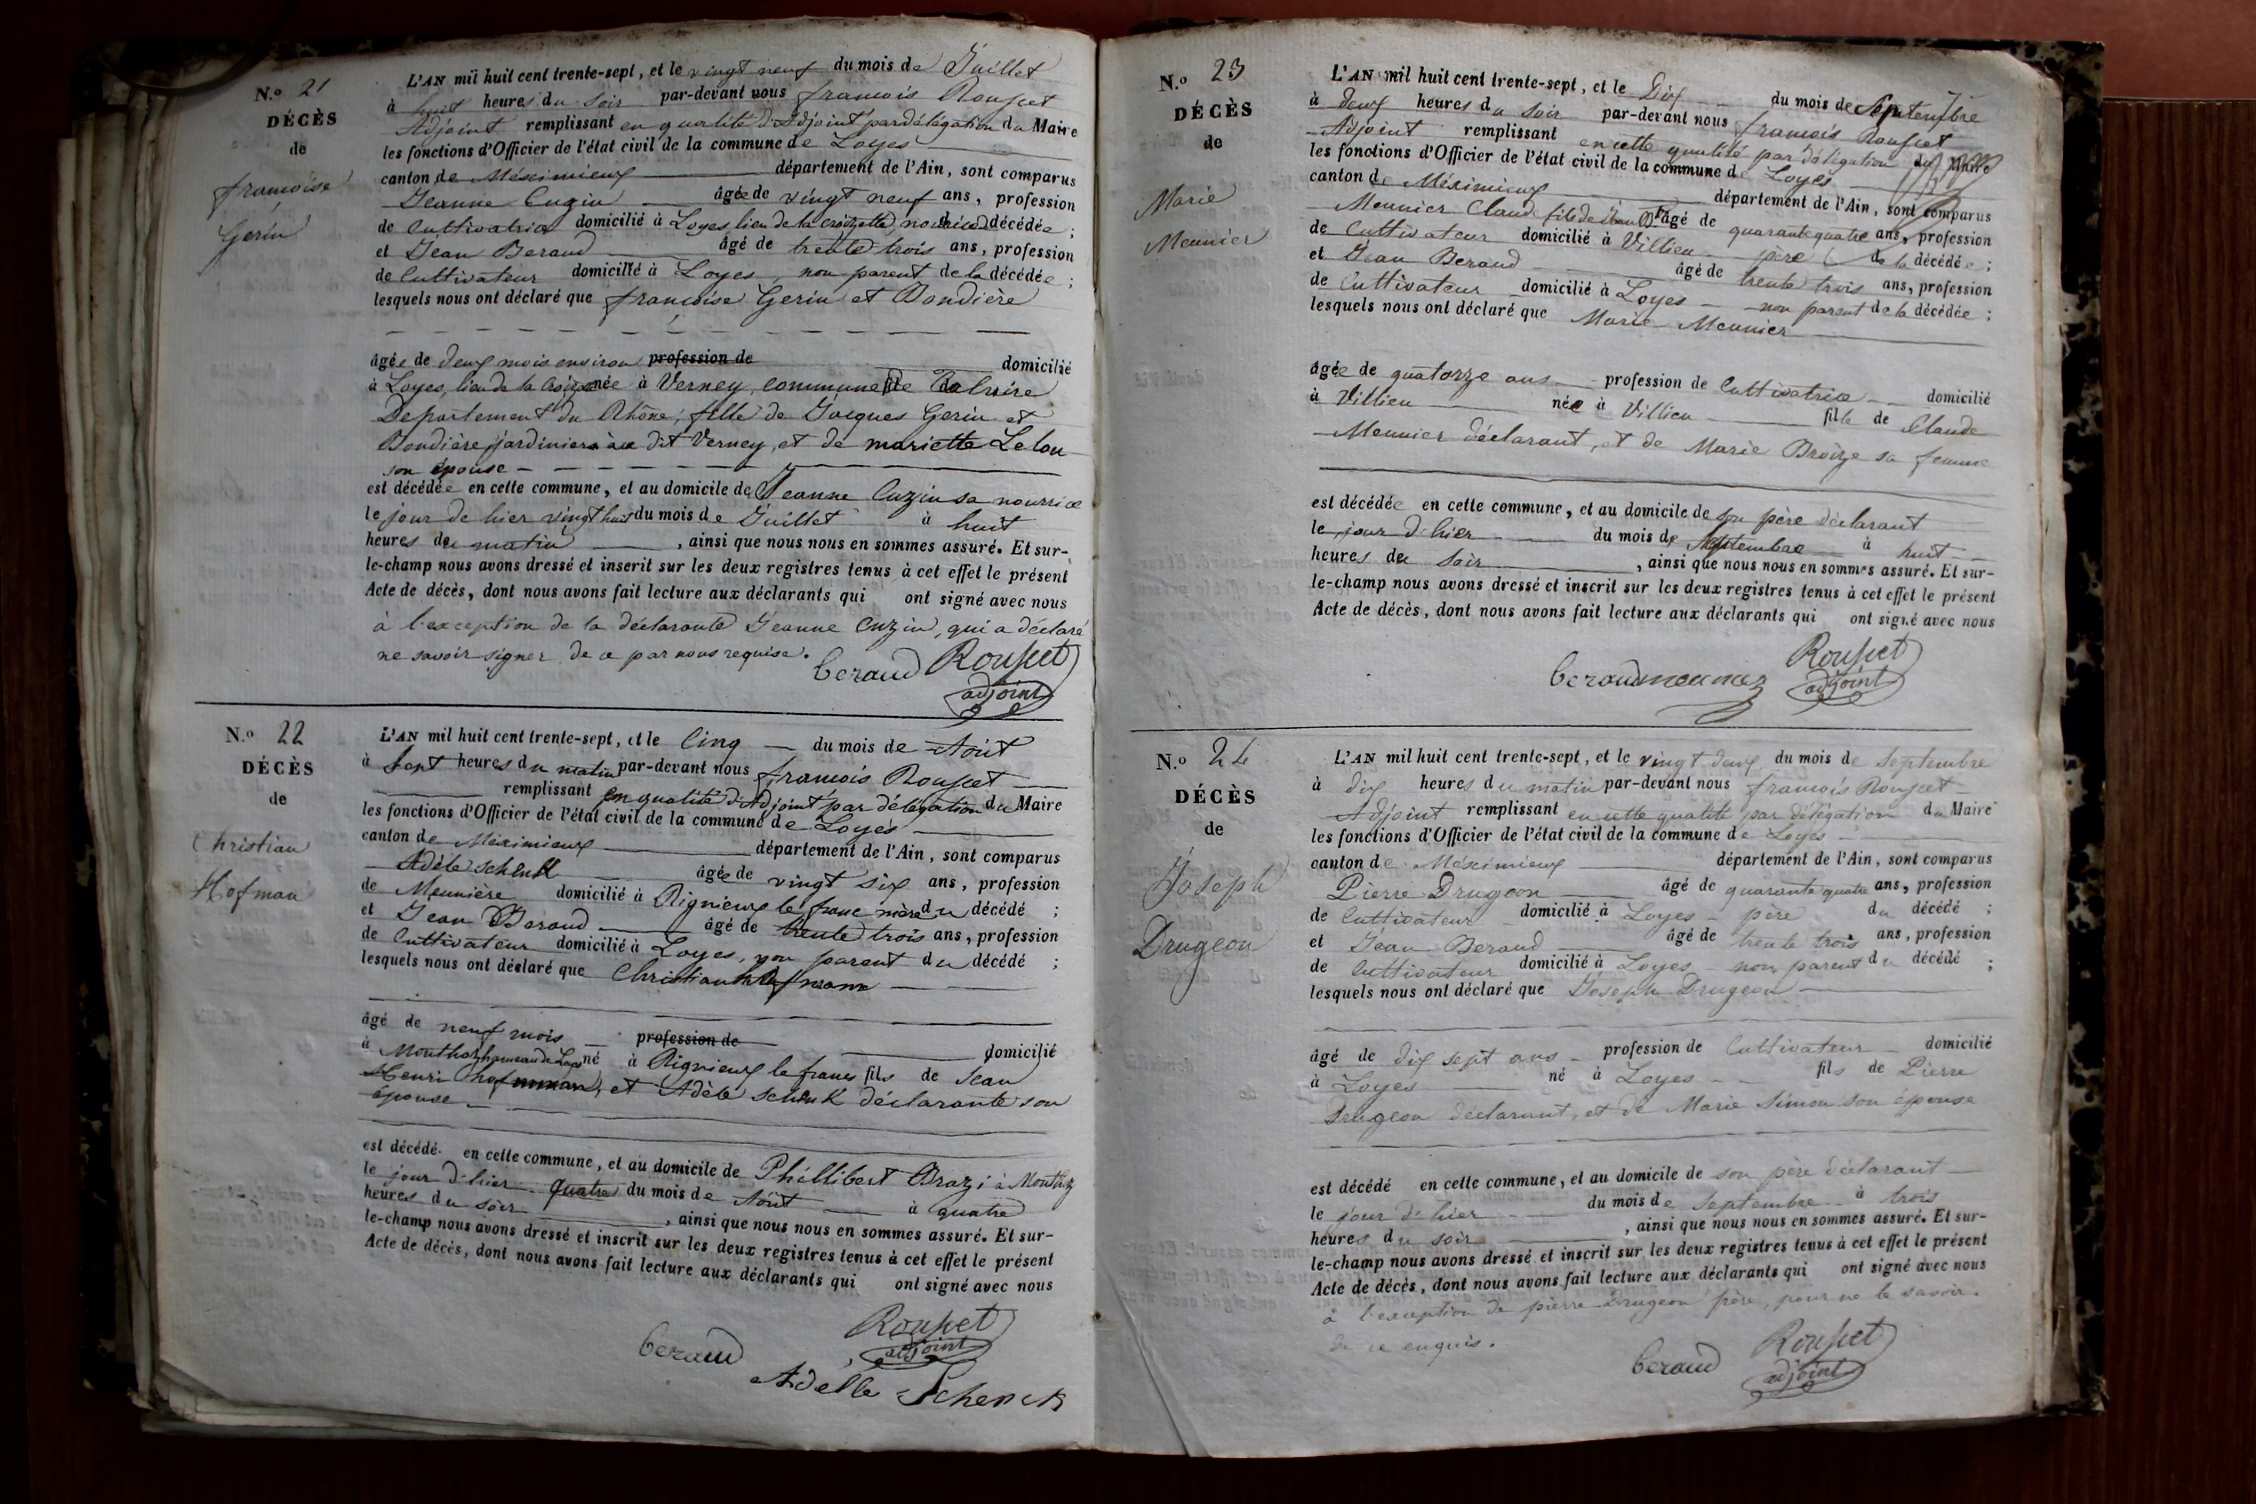 N.º 21
DÉCÈS
de
françoise
Gerin
L'AN mil huit cent trente-sept, et le vingt neuf du mois de Juillet
à huit heures du soir par-devant nous francois Rouset
Adjoint remplissant en qualité d'Adjoint par délégation du Maire
les fonctions d'Officier de l'état civil de la commune de Loyes
canton de Méximieux département de l'Ain, sont comparus
Jeanne Cuzin âgée de vingt neuf ans, profession
de Cultivatrice domicilié à Loyes, lieu de la croizette, nourrice décédée ;
et Jean Beraud âgé de trente trois ans, profession
de Cultivateur domicilié à Loyes, non parent de la décédée ;
lesquels nous ont déclaré que françoise Gerin et Dondière
âgée de deux mois environ profession de domicilié
à Loyes, lieu de la née à Verney, commune de Caluire
Departement du Rhône ; fille de Jacques Gerin et
Dondière, jardiniers au dit Verney, et de mariette Lelou
son épouse
est décédée en cette commune, et au domicile de Jeanne Cuzin sa nourrice
le jour de hier vingt huit du mois de Juillet à huit
heures du matin, ainsi que nous nous en sommes assuré. Et sur-
le-champ nous avons dressé et inscrit sur les deux registres tenus à cet effet le présent
Acte de décès, dont nous avons fait lecture aux déclarants qui ont signé avec nous
à l'exception de la déclarante Jeanne Cuzin, qui a déclaré
ne savoir signer de ce par nous requise.
beraud Rouset
adjoint
N.º 22
DÉCÈS
de
Christian
Hofman
L'AN mil huit cent trente-sept, et le Cinq du mois de Aout
à Sept heures du matin par-devant nous francois Rouset
remplissant en qualité d'Adjoint par délégation du Maire
les fonctions d'Officier de l'état civil de la commune de Loyes
canton de Méximieux département de l'Ain, sont comparus
Adèle schenk âgée de vingt six ans, profession
de Meunière domicilié à Rignieux le franc mère du décédé ;
et Jean Beraud âgé de trente trois ans, profession
de Cultivateur domicilié à Loyes, non parent du décédé ;
lesquels nous ont déclaré que Christian hofmann
âgé de neuf mois profession de domicilié
à Monthoz hameau de Loyes né à Rignieux le franc fils de Jean
Henri hofmman, et Adèle schenk déclarante son
épouse
est décédé en cette commune, et au domicile de Phillibert Brazi à Monthoz
le jour d'hier quatre du mois de Août à quatre
heures du soir, ainsi que nous nous en sommes assuré. Et sur-
le-champ nous avons dressé et inscrit sur les deux registres tenus à cet effet le présent
Acte de décès, dont nous avons fait lecture aux déclarants qui ont signé avec nous
Rouset
beraud adjoint
Adelle Schenck
N.º 23
DÉCÈS
de
Marie
Meunier
L'AN mil huit cent trente-sept, et le Dix du mois de Septembre
à deux heures du soir par-devant nous francois Rouset
Adjoint remplissant en cette qualité par délégation du Maire
les fonctions d'Officier de l'état civil de la commune de Loyes
canton de Méximieux département de l'Ain, sont comparus
Meunier Claude fils de âgé de quarante quatre ans, profession
de Cultivateur domicilié à Villieu père de la décédée ;
et Jean Beraud âgé de trente trois ans, profession
de Cultivateur domicilié à Loyes non parent de la décédée ;
lesquels nous ont déclaré que Marie Meunier
âgée de quatorze ans profession de Cultivatrice domicilié
à Villieu née à Villieu fille de Claude
Meunier déclarant, et de Marie Broize sa femme
est décédée en cette commune, et au domicile de son père déclarant
le jour d'hier du mois de Septembre à huit
heures du soir, ainsi que nous nous en sommes assuré. Et sur-
le-champ nous avons dressé et inscrit sur les deux registres tenus à cet effet le présent
Acte de décès, dont nous avons fait lecture aux déclarants qui ont signé avec nous
Rouset
beraud meunier adjoint
N.º 24
DÉCÈS
de
Joseph
Drugeon
L'AN mil huit cent trente-sept, et le vingt deux du mois de Septembre
à dix heures du matin par-devant nous francois Rouset
Adjoint remplissant en cette qualité par délégation du Maire
les fonctions d'Officier de l'état civil de la commune de Loyes
canton de Méximieux département de l'Ain, sont comparus
Pierre Drugeon âgé de quarante quatre ans, profession
de Cultivateur domicilié à Loyes père du décédé ;
et Jean Beraud âgé de trente trois ans, profession
de Cultivateur domicilié à Loyes non parent du décédé ;
lesquels nous ont déclaré que Joseph Drugeon
âgé de dix sept ans profession de Cultivateur domicilié
à Loyes né à Loyes fils de Pierre
Drugeon déclarant, et de Marie Simon son épouse
est décédé en cette commune, et au domicile de son père déclarant
le jour d'hier du mois de Septembre à trois
heures du soir, ainsi que nous nous en sommes assuré. Et sur-
le-champ nous avons dressé et inscrit sur les deux registres tenus à cet effet le présent
Acte de décès, dont nous avons fait lecture aux déclarants qui ont signé avec nous
à l'exception de pierre Drugeon père, pour ne le savoir.
de ce enquis.
beraud Rouset
adjoint